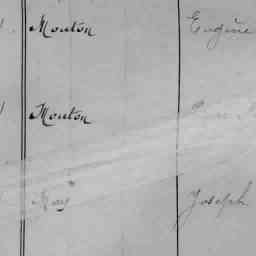 Mouton Eugène
Mouton
May Joseph